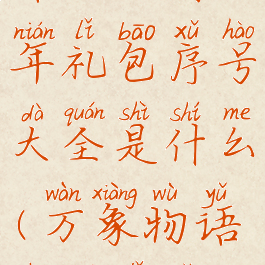 nián lǐ bāo xǔ hào
年礼包序号
dà quán shì shí me
大全是什么
wàn xiàng wù yǔ
(万象物语